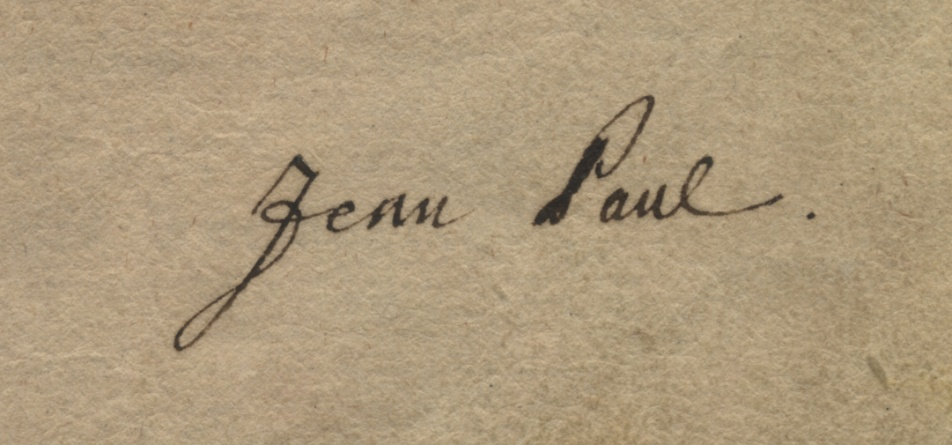 Jean Paul.